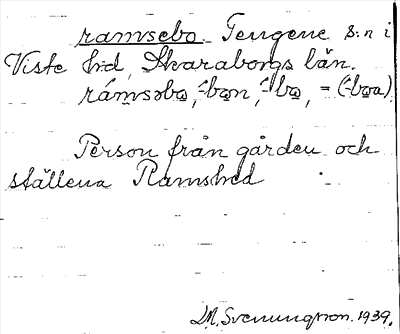 ramsebo. Tengene s:n i
Viste hrd, Skaraborgs län.
rámsəbo̱, -bo̱n, -bo̱, = (-bo̱a).
Person från gården och
ställena Ramshed
D.M. Svenungsson. 1939.